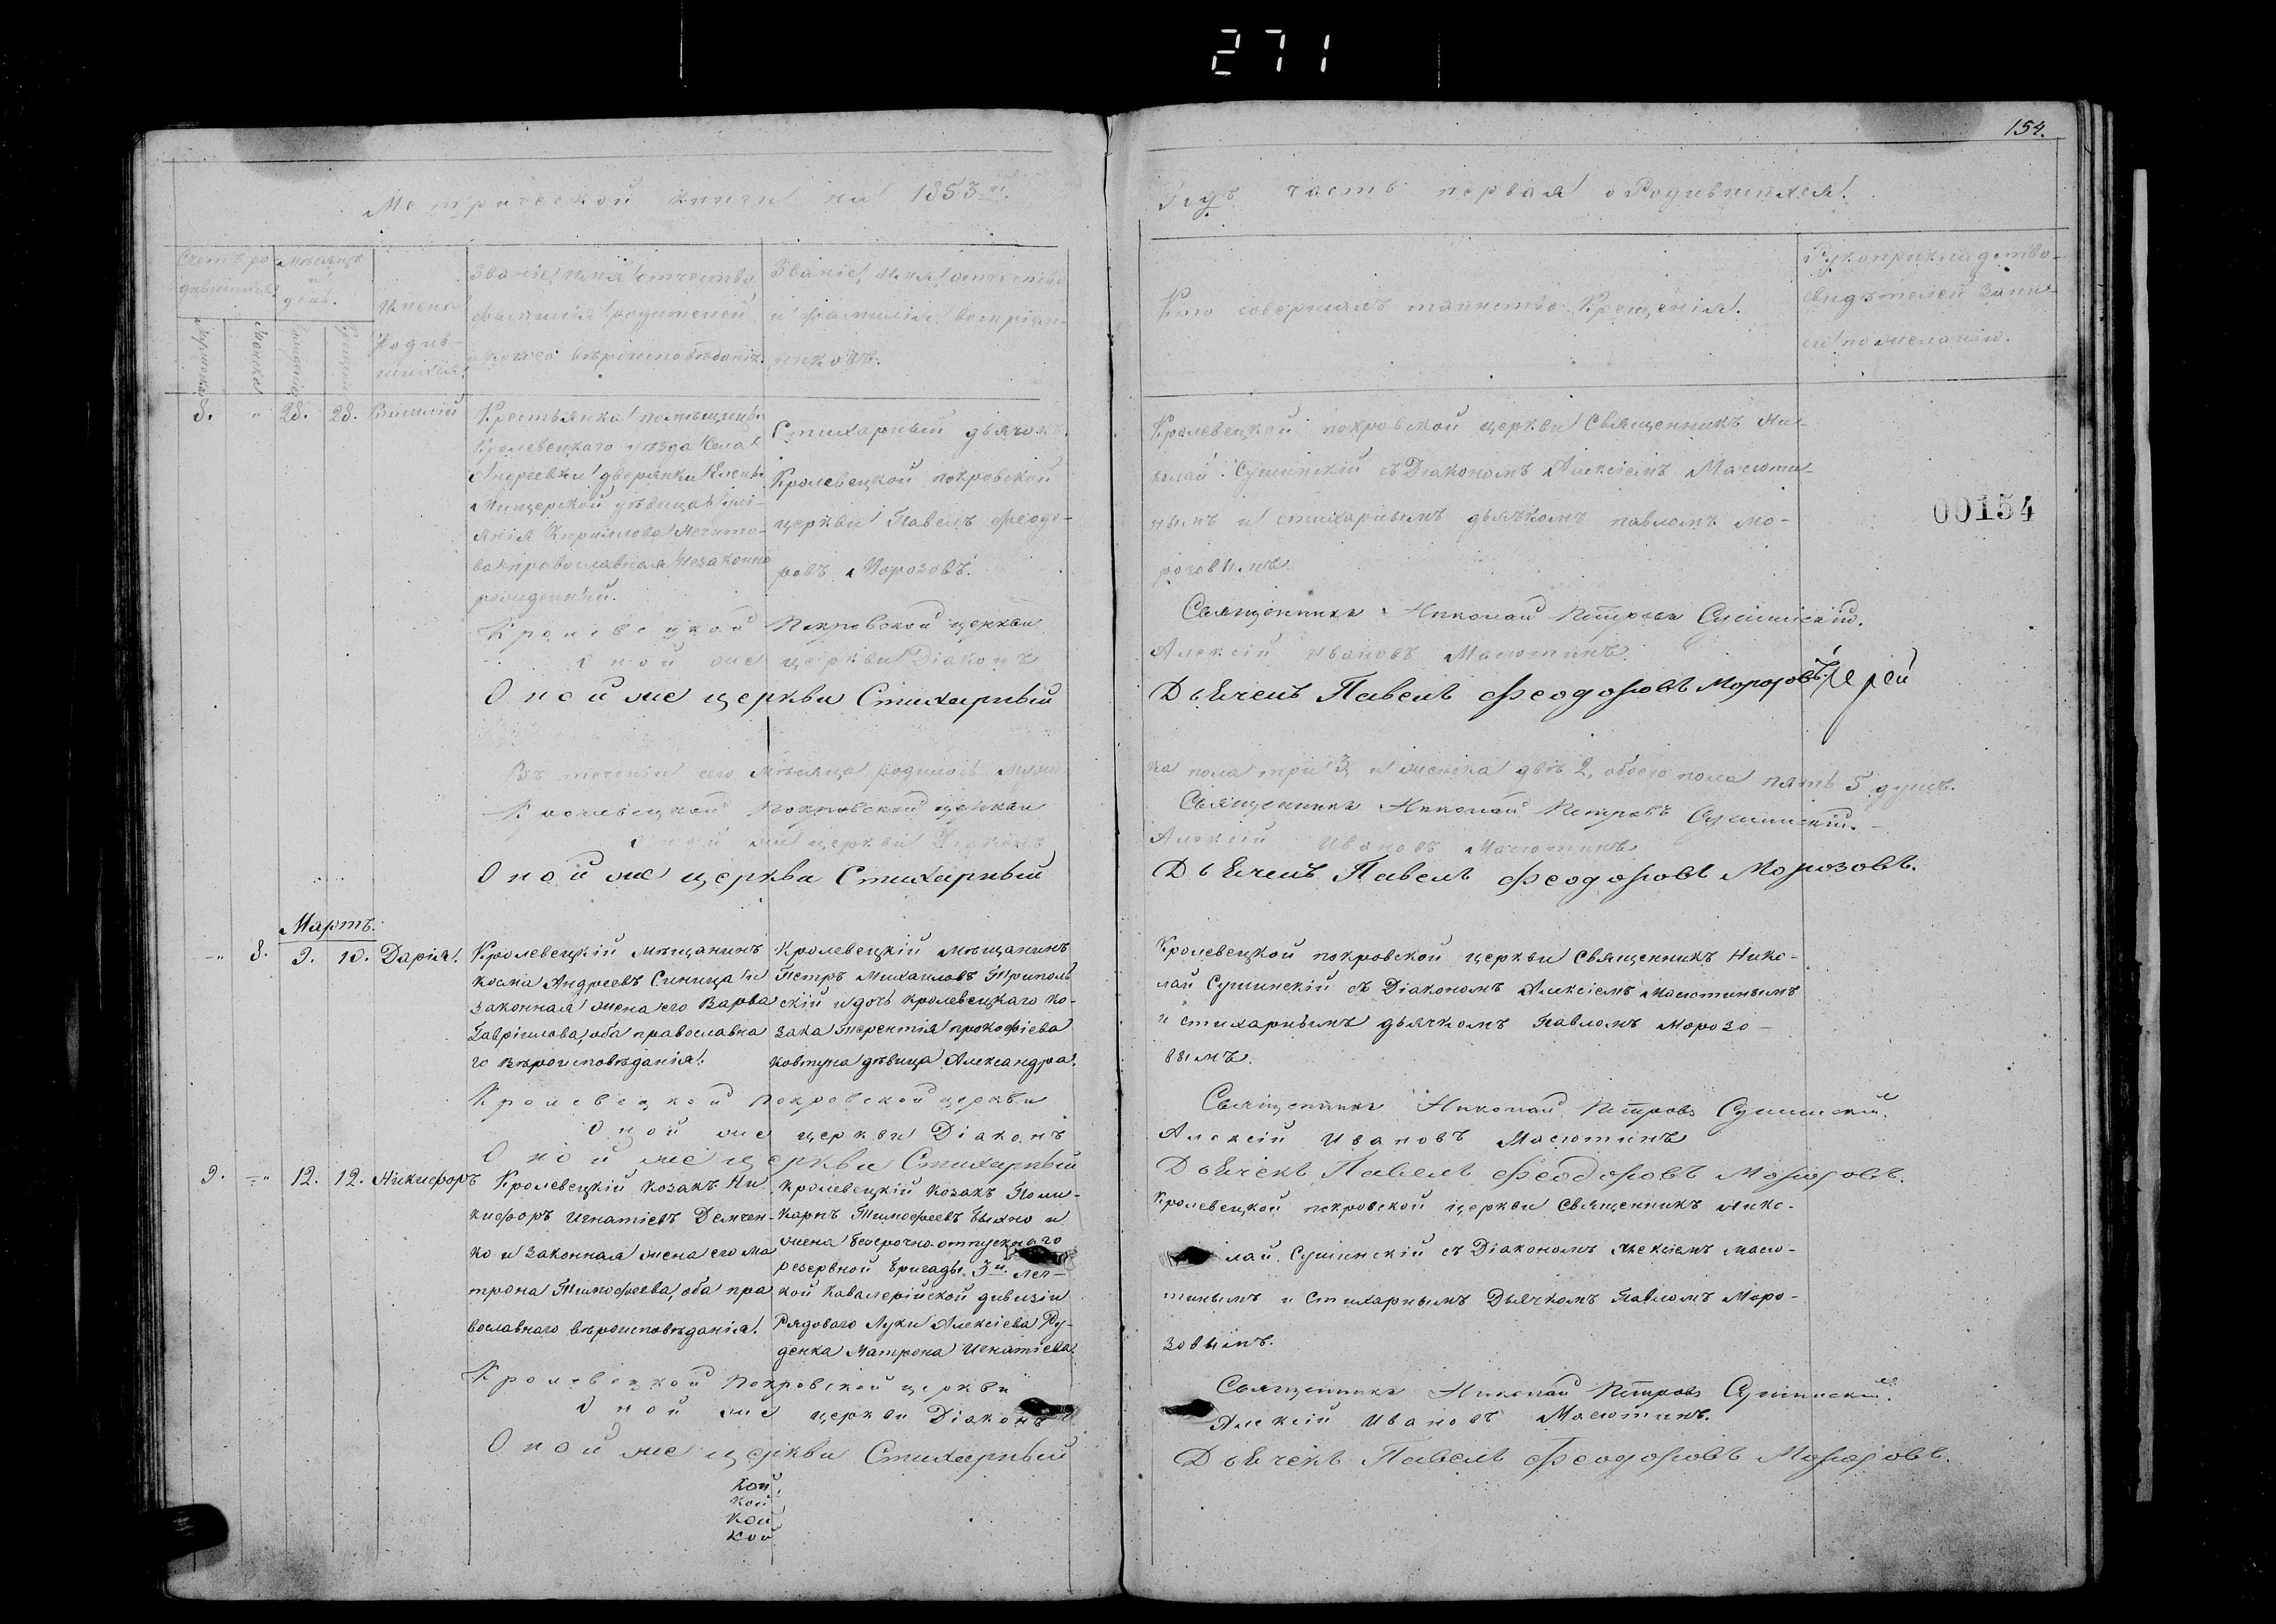 271
154.
Метрической книги на 1853й.
Годъ часть первая о Родившихся.
Счетъ ро-
дившихся.
мѣсяцъ
и
день.
Имена
Родив-
шихся.
Мужеска
Женска
рожденія
крещенія
Званіе, имя, отчество,
фамилія родителей
и какого вѣроисповѣданія.
Званіе, имя, отчество
и фамилія воспріем-
никовъ.
Кто совершалъ таинство Крещенія.
Рукоприкладство
свидѣтелей запи-
си по желанію.
8. " 28. 28. Василій
Крестьянка помѣщицы
Кролевецкаго уѣзда Села
Андреевки дворянки Елены
дѣвица
Кирилова
православная Незаконно
рожденный.
Стихарный дьячокъ
Кролевецкой покровской
церкви Павелъ Феодо-
ровъ Морозовъ.
Кролевецкой покровской церкви Священникъ Ни-
колай Сушинскій съ Діакономъ Алексіемъ Масюти-
нымъ и стихарнымъ дьячкомъ павломъ мо-
розовымъ.
00154
Кролевецкой Покровской церкви Священникъ Николай Петровъ Сушинскій.
Оной же церкви Діаконъ Алексій Ивановъ Масютинъ.
Оной же церкви Стихарный Дьячекъ Павелъ Феодоровъ Морозовъ. Іерей
Въ теченіи сего мѣсяца родилось мужес-
ка пола три 3 и женска двѣ 2, обоего пола пять 5 душъ.
Кролевецкой Покровской церкви Священникъ Николай Петровъ Сушинскій.
Оной же церкви Діаконъ Алексій Ивановъ Масютинъ
Оной же церкви Стихарный Дьячекъ Павелъ Феодоровъ Морозовъ.
Мартъ.
" 8. 9. 10. Дарія.
Кролевецкій Мѣщанинъ
косма Андреевъ Синица и
законная жена его Варва
Гавріилова, оба православна
го вѣроисповѣданія.
Кролевецкій Мѣщанинъ
Петръ Михаиловъ Триполь
скій и дочь кролевецкаго ко-
зака Терентія прокофіева
Ковтуна дѣвица Александра.
Кролевецкой покровской церкви священникъ Нико-
лай Сушинскій съ Діакономъ Алексіемъ Масютинымъ
и стихарнымъ дьячкомъ Павломъ Морозо-
вымъ.
Кролевецкой Покровской церкви Священникъ Николай Петровъ Сушинскій.
Оной же церкви Діаконъ Алексій Ивановъ Масютинъ
Оной же церкви Стихарный Дьячекъ Павелъ Феодоровъ Морозовъ.
9. " 12. 12. Никифоръ
Кролевецкій козакъ Ни
кифоръ Игнатіевъ Демчен-
ко и законная жена его Ма
трона Тимофеева, оба пра
вославнаго вѣроисповѣданія.
Кролевецкій козакъ Поли-
карпъ Тимофеевъ Былко и
жена безсрочно-отпускнаго
резервной бригады 3й лег-
кой Кавалерійской дивизіи
Рядоваго Луки Алексіева Ру-
денка Матрона Игнатіева.
Кролевецкой покровской церкви священникъ Нико-
лай Сушинскій съ Діакономъ Алексіемъ Масю-
тинымъ и Стихарнымъ Дьячкомъ Павломъ Моро-
зовымъ.
Кролевецкой Покровской церкви Священникъ Николай Петровъ Сушинскій.
Оной же церкви Діаконъ Алексій Ивановъ Масютинъ.
Оной же церкви Стихарный Дьячекъ Павелъ Феодоровъ Морозовъ.
кой
кой
кой
кой